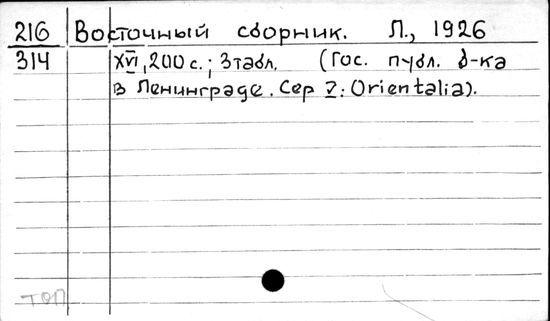 216 Восточный сборник. Л., 1926
314 XVI, 200 с.; 3 табл. (Гос. публ. б-ка
в Ленинграде. Сер V: Orientalia).
ТОП